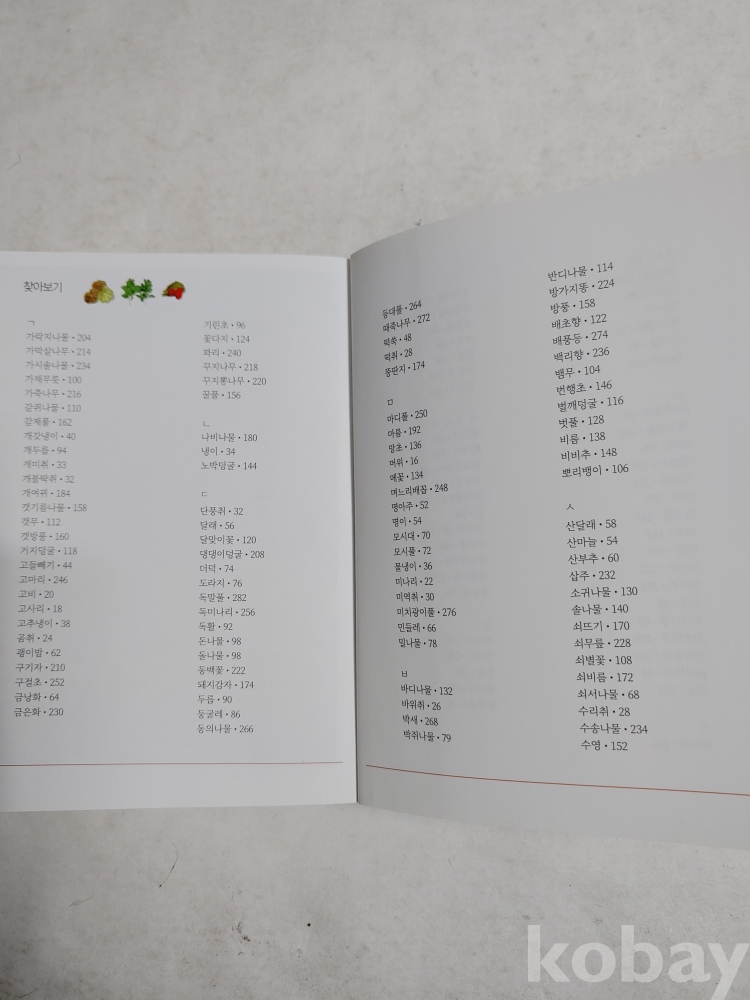 찾아보기
ㄱ
가락지나물 • 204
가막살나무 • 214
가시솔나물 • 234
가재무릇 • 100
가죽나무 • 216
갈퀴나물 • 110
갈게풀 • 162
개갓냉이 • 40
개두릅 • 94
개미취 • 33
개불딱취 • 32
개여뀌 • 184
갯기름나물 • 158
갯무 • 112
갯방풍 • 160
거지덩굴 • 118
고들빼기 • 44
고마리 • 246
고비 • 20
고사리 • 18
고추냉이 • 38
곰취 • 24
괭이밥 • 62
구기자 • 210
구절초 • 252
금낭화 • 64
금은화 • 230
기린초 • 96
꽃다지 • 124
꽈리 • 240
꾸지나무 • 218
꾸지뽕나무 • 220
꿀풀 • 156
ㄴ
나비나물 • 180
냉이 • 34
노박덩굴 • 144
ㄷ
단풍취 • 32
달래 • 56
달맞이꽃 • 120
댕댕이덩굴 • 208
더덕 • 74
도라지 • 76
독말풀 • 282
독미나리 • 256
독활 • 92
돈나물 • 98
돌나물 • 98
동백꽃 • 222
돼지감자 • 174
두릅 • 90
둥굴레 • 86
동의나물 • 266
등대풀 • 264
때죽나무 • 272
떡쑥 • 48
떡취 • 28
뚱딴지 • 174
ㅁ
마디풀 • 250
마름 • 192
망초 • 136
머위 • 16
메꽃 • 134
며느리배꼽 • 248
명아주 • 52
명이 • 54
모시대 • 70
모시풀 • 72
물냉이 • 36
미나리 • 22
미역취 • 30
미치광이풀 • 276
민들레 • 66
밀나물 • 78
ㅂ
바디나물 • 132
바위취 • 26
박새 • 268
박쥐나물 • 79
반디나물 • 114
방가지똥 • 224
방풍 • 158
배초향 • 122
배풍등 • 274
백리향 • 236
뱀무 • 104
번행초 • 146
벌깨덩굴 • 116
벗풀 • 128
비름 • 138
비비추 • 148
뽀리뱅이 • 106
ㅅ
산달래 • 58
산마늘 • 54
산부추 • 60
삽주 • 232
소귀나물 • 130
솔나물 • 140
쇠뜨기 • 170
쇠무릎 • 228
쇠별꽃 • 108
쇠비름 • 172
쇠서나물 • 68
수리취 • 28
수송나물 • 234
수영 • 152
kobay